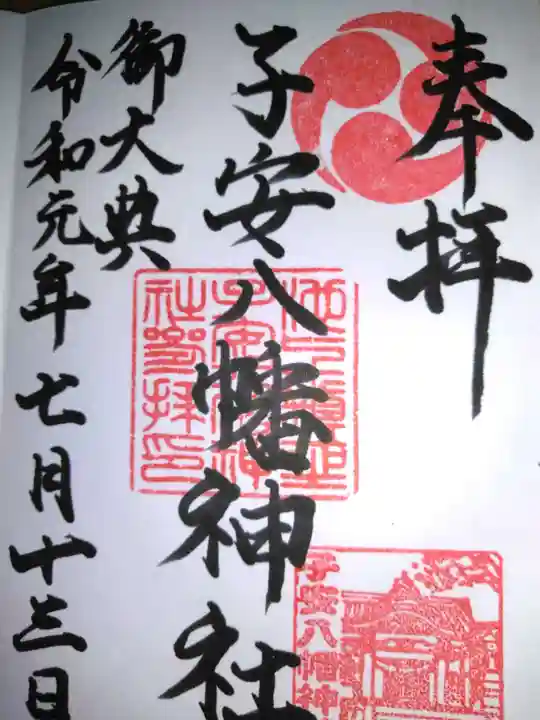 奉拝
子安八幡神社
御大典
令和元年七月十三日
子安八幡神